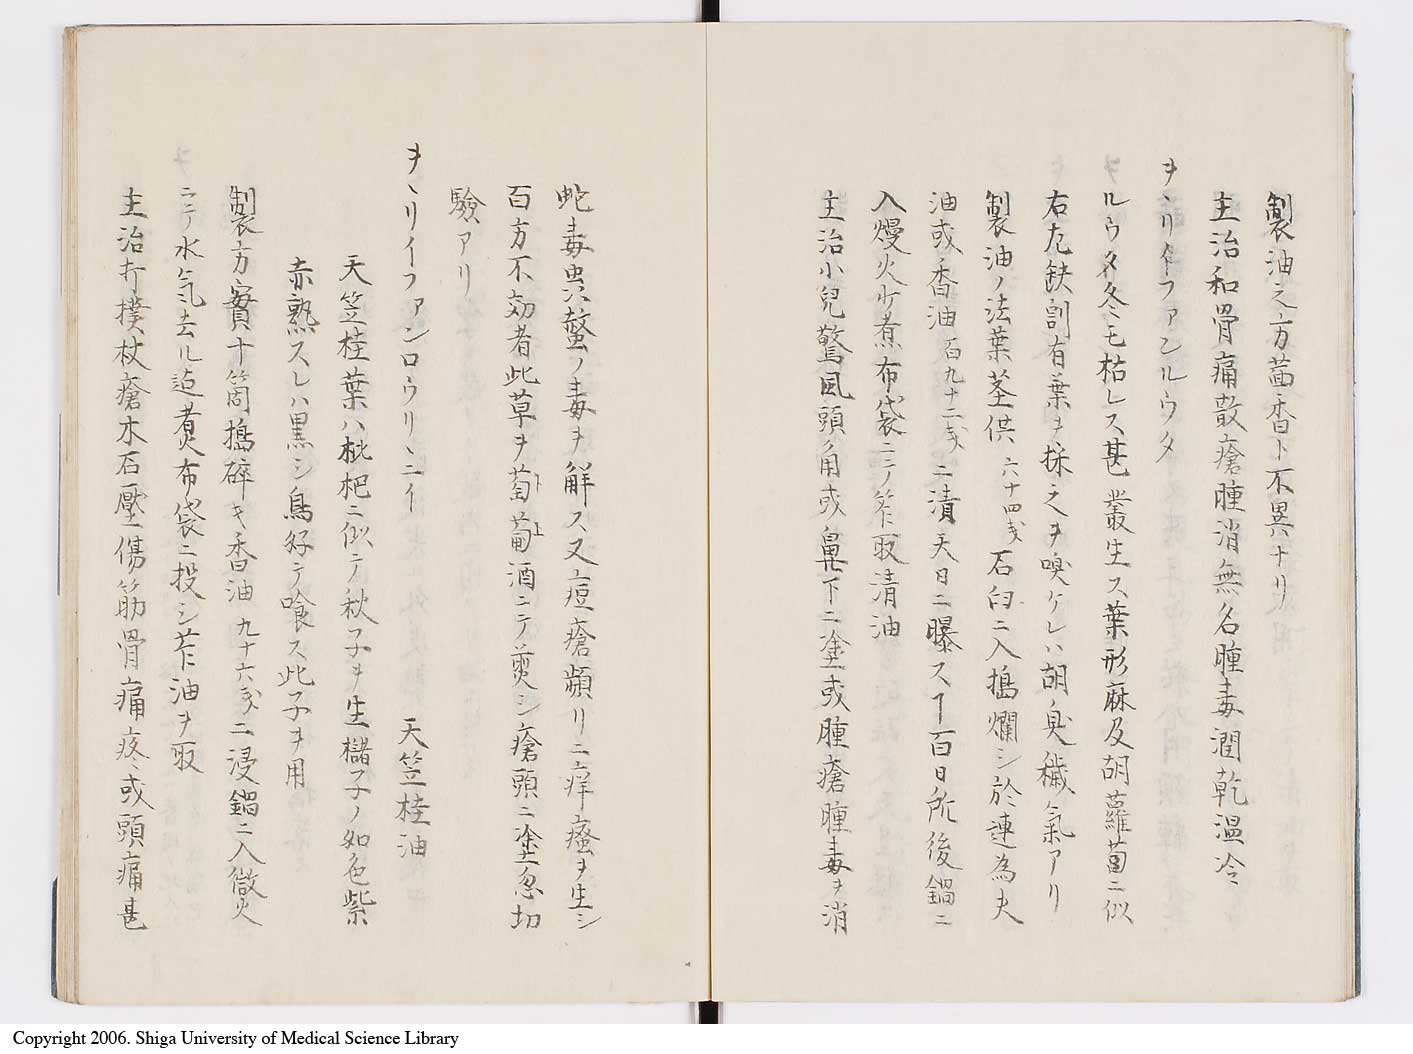 製油之方茴香ト不異ナリ
主治和骨痛散瘡腫消無名腫毒潤乾温冷
ヲヽリイフアンルウタ
ルウタ冬モ枯レス甚叢生ス葉形麻及胡蘿蔔ニ似
右左鈌割有葉ヲ採之ヲ嗅ケレハ胡臭穢氣アリ
製油ノ法葉茎供六十四戔石臼ニ入搗爛シ於連為夫
油或香油百九十二戔ニ漬天日ニ曝スヿ百日所後鍋ニ
入熳火ニ煮布袋ニテ笮取清油
主治小兒驚風頭角或鼻下ニ塗或腫瘡腫毒ヲ消
蛇毒虫螫ノ毒ヲ解ス又痘瘡頻リニ痒瘙ヲ生シ
百方不効者此草ヲ萄葡酒ニテ煎シ瘡頭ニ塗忽切
驗アリ
ヲヽリイフアンロウリンニイ 天笠桂油
天笠桂葉ハ枇杷ニ似テ秋子ヲ生櫧子ノ如色紫
赤熟スレハ黒シ鳥好テ喰ス此子ヲ用
製方實十箇搗碎キ香油九十六戔ニ浸鍋ニ入微火
ニテ水気去ル迠煮布袋ニ投シ笮油ヲ取
主治打撲杖瘡木石壓傷筋骨痛疼或頭痛甚
Copyright 2006. Shiga University of Medical Science Library